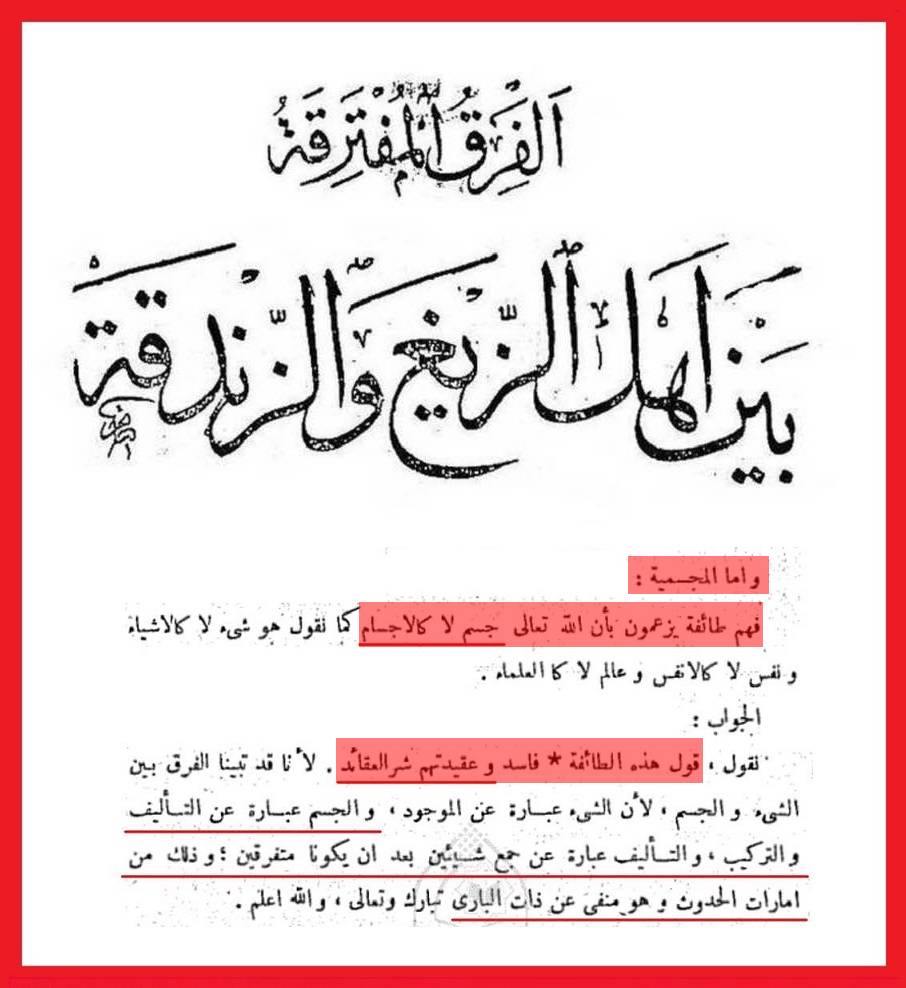 الفِرَقُ المُفْتَرِقَةُ
بَيْنَ أهْلِ الزَّيْغِ وَالزَّنْدَقَةِ
واما المجسمية :
فهم طائفة يزعمون بأن الله تعالى جسم لا كالاجسام كما نقول هو شىء لا كالاشياء
و نفس لا كالانفس و عالم لا كا العلماء .
الجواب :
نقول ، قول هذه الطائفة * فاسد و عقيدتهم شرالعقائد . لأنا قد تبينا الفرق بين
الشىء و الجسم ، لأن الشىء عبارة عن الموجود ، و الجسم عبارة عن التأليف
و التركيب ، و التأليف عبارة عن جمع شيئين بعد ان يكونا متفرقين ؛ و ذلك من
امارات الحدوث و هو منفى عن ذات البارى تبارك وتعالى ، و الله اعلم .